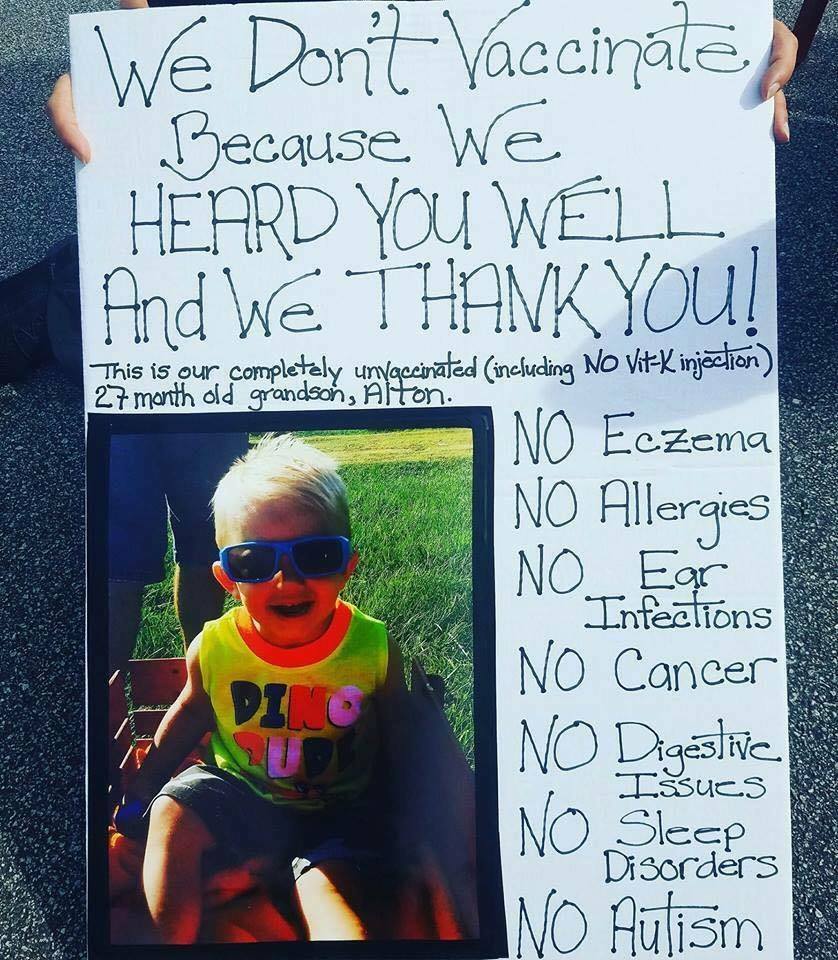 We Don't Vaccinate
Because We
HEARD YOU WELL
And We THANK YOU!
This is our completely unvaccinated (including NO Vit-K injection)
27 month old grandson, Alton.
NO Eczema
NO Allergies
NO Ear
Infections
NO Cancer
NO Digestive
Issues
NO Sleep
Disorders
NO Autism
DINO
DUDE